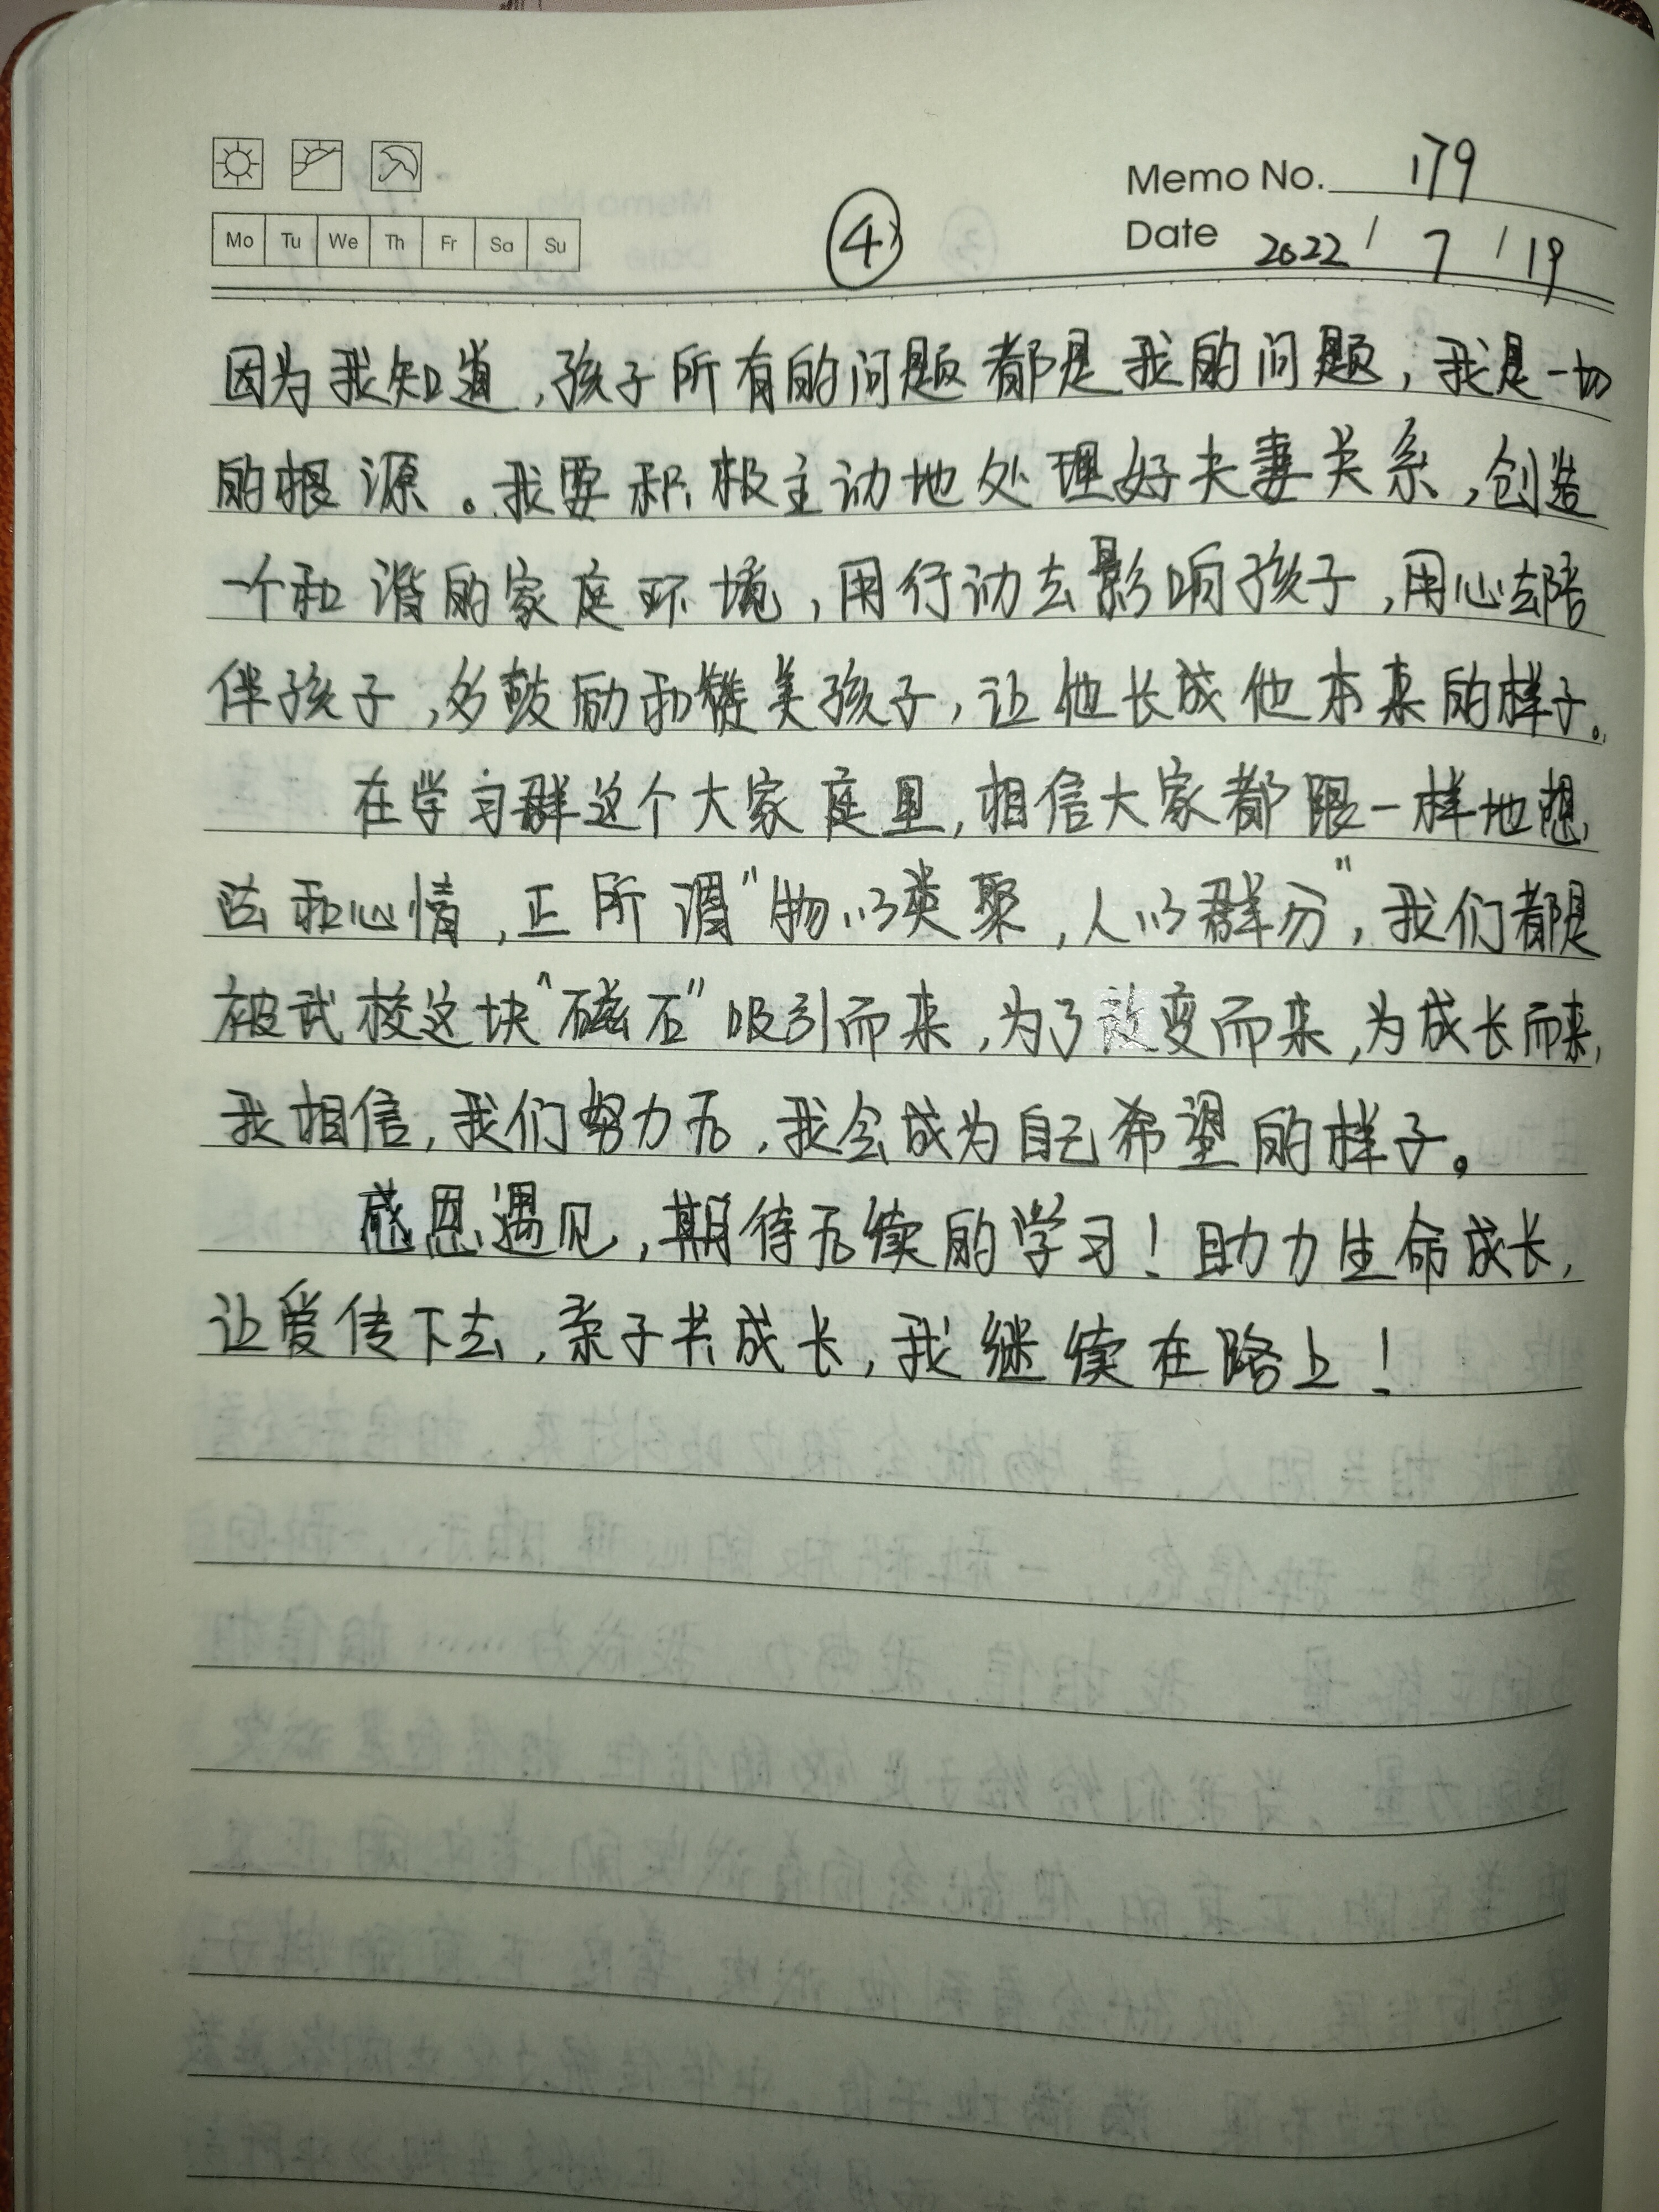 Memo No. 179
Mo Tu We Th Fr Sa Su
④
Date 2022 / 7 / 19
因为我知道，孩子所有的问题都是我的问题，我是一切
的根源。我要积极主动地处理好夫妻关系，创造
一个和谐的家庭环境，用行动去影响孩子，用心去陪
伴孩子，多鼓励和赞美孩子，让他长成他本来的样子。
在学习群这个大家庭里，相信大家都跟一样地想
法和心情，正所谓"物以类聚，人以群分"，我们都是
被武校这块"磁石"吸引而来，为了改变而来，为成长而来，
我相信，我们努力后，我会成为自己希望的样子。
感恩遇见，期待后续的学习！助力生命成长，
让爱传下去，亲子共成长，我继续在路上！